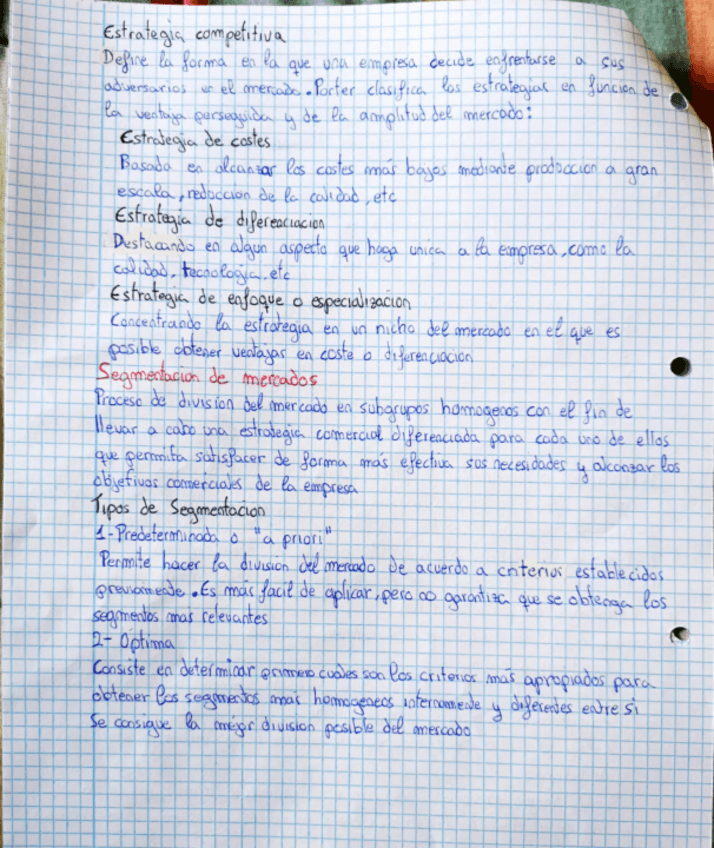 Estrategia competitiva
Define la forma en la que una empresa decide enfrentarse a sus
adversarios en el mercado. Porter clasifica las estrategias en función de
la ventaja perseguida y de la amplitud del mercado:
Estrategia de costes
Basada en alcanzar los costes más bajos mediante produccion a gran
escala, reduccion de la calidad, etc
Estrategia de diferenciacion
Destacando en algun aspecto que haga unica a la empresa, como la
calidad, tecnologia, etc
Estrategia de enfoque o especializacion
Concentrando la estrategia en un nicho del mercado en el que es
posible obtener ventajas en coste o diferenciacion
Segmentacion de mercados
Proceso de division del mercado en subgrupos homogenos con el fin de
llevar a cabo una estrategia comercial diferenciada para cada uno de ellos
que permita satisfacer de forma más efectiva sus necesidades y alcanzar los
objetivos comerciales de la empresa
Tipos de Segmentacion
1-Predeterminada o "a priori"
Permite hacer la división del mercado de acuerdo a criterios establecidos
previamente. Es más facil de aplicar, pero no garantiza que se obtenga los
segmentos mas relevantes
2- Optima
Consiste en determinar primero cuales son los criterios más apropiados para
obtener los segmentos más homogeneos internamente y diferentes entre si
Se consigue la mejor division posible del mercado